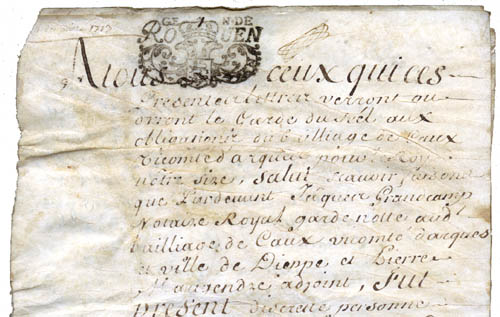 GEN DE
ROUEN
A tous ceux qui ces
presentes lettres verront ou
orront le Garde du Scel aux
obligations du bailliage de Caux
vicomté d'arques pour le Roy
notre sire, salut scavoir faisons
que Pardevant Jacques Grandcamp
Notaire Royal garde notte audt
bailliage de Caux vicomté d'arques
et ville de Dieppe et Pierre
adjoint, fut
present discrette personne